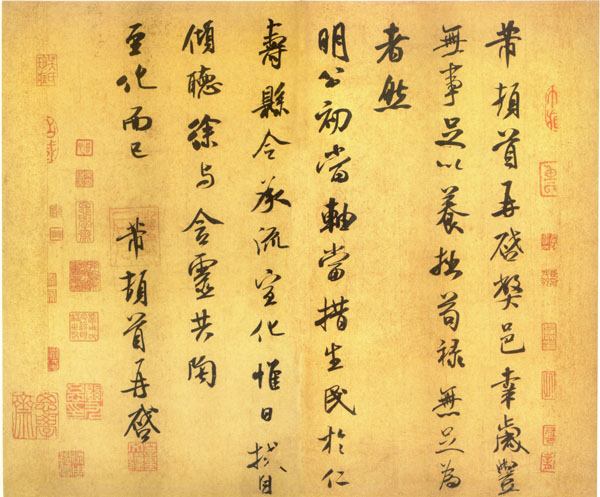 芾頓首再啓弊邑幸歲豐
無事足以養拙苟祿無足為
者然
明公初當軸當措生民於仁
壽縣令承流宣化惟日拭目
傾聽徐與含靈共陶
至化而已
芾頓首再啓